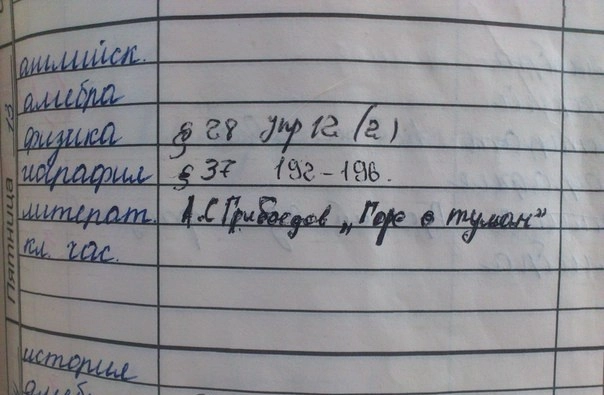 Пятница 13
английск.
алгебра
физика § 28 упр 12 (2)
география § 37 192-196.
литерат. А.С Грибоедов „Горе о туман"
кл. час.
история
алгеб